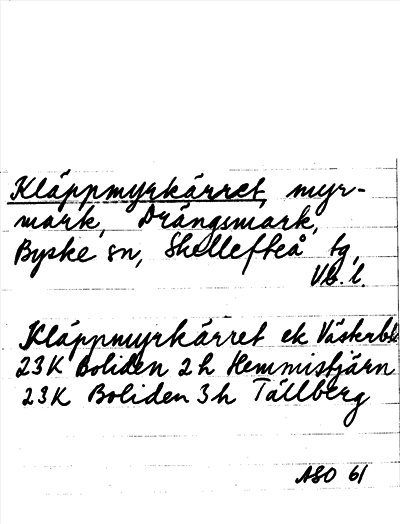 Kläppmyrkärret, myr-
mark, Drängsmark,
Byske sn, Skellefteå tg,
Vb. l.
Kläppmyrkärret ek Västerb
23K Boliden 2h Hemmistjärn
23K Boliden 3h Tällberg
ASO 61